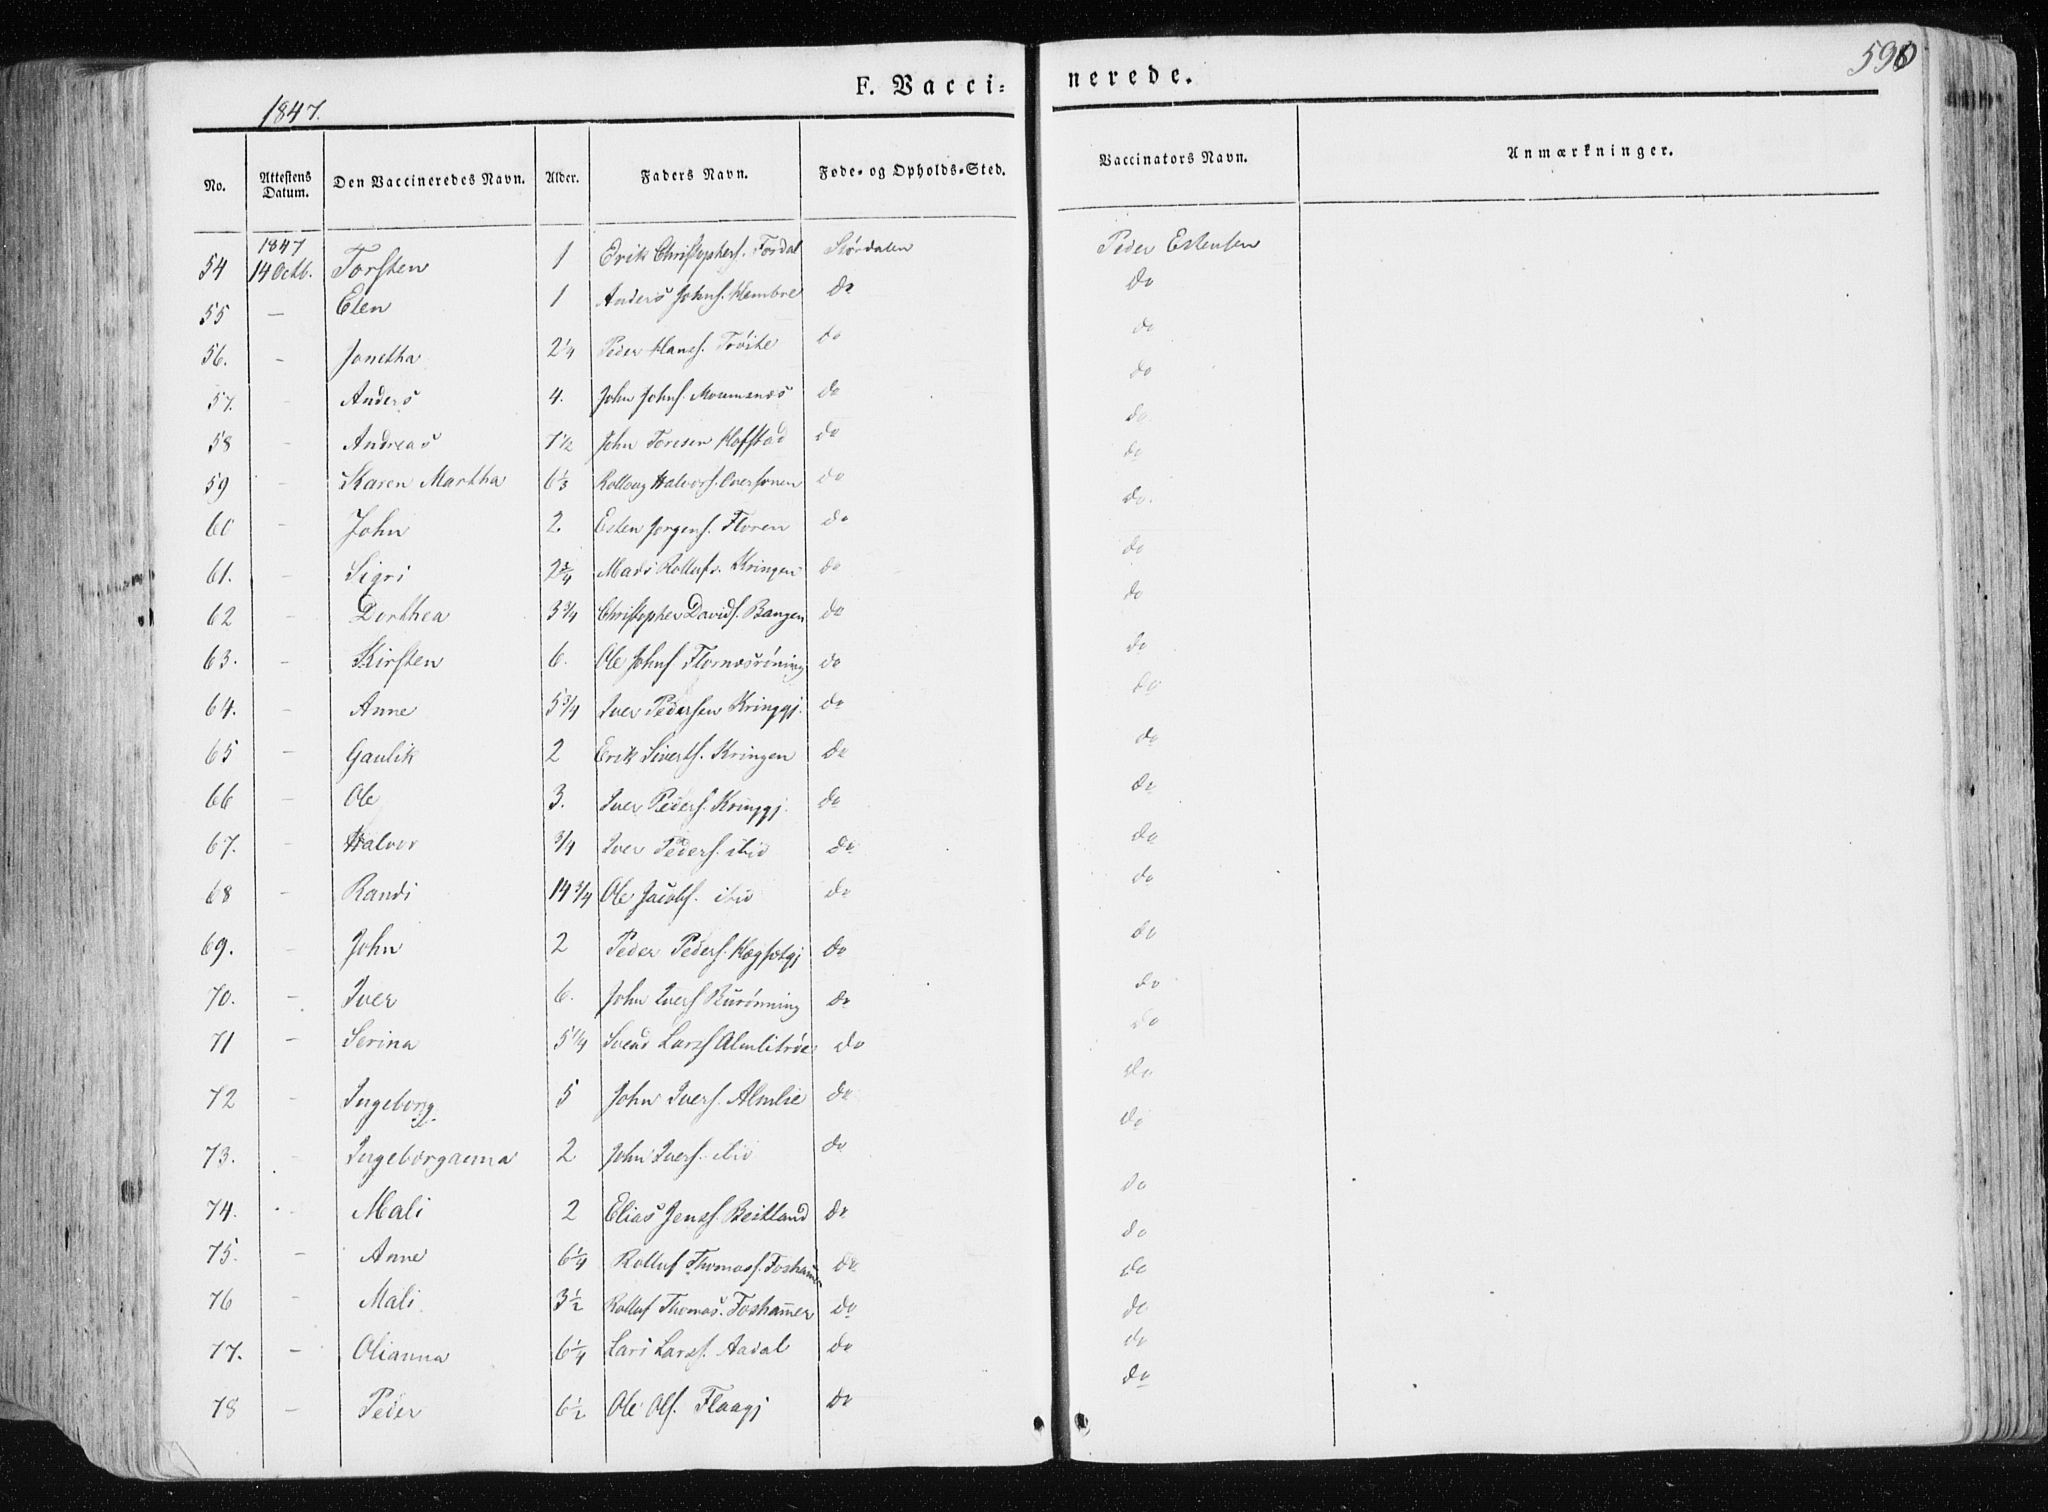 590
F. Vacci=nerede.
1847.
No. Attestens Datum. Den Vaccineredes Navn. Alder. Faders Navn. Føde- og Opholds-Sted. Vaccinators Navn. Anmærkninger.
1847
54 14 Octb. Torsten 1 Erik Christophers. Fordal Størdalen Peder Estensen
55 — Elen 1 Anders Johns. Hembre do do
56. — Jonetha 2 1/4 Peder Hans. Trøite do do
57. — Anders 4. John Johns. Moumsnes do do
58 — Andreas 7 1/2 John Toresen Hofstad do do
59 — Karen Martha 6 1/3 Halvors. do do
60 — John 2. Esten Jorgens. Floren do do.
61. — Sigri 2 3/4 Mads Rollufs. Kringen do do
62 — Dorthea 3 3/4 Christopher Davids. Bangen do do
63. — Kirsten 6. Ole Johns. Flornesrøning do do
64. — Anne 5 3/4 Iver Pedersen Kringgj. do do
65 — Gaulik 2 Erik Siverts. Kringen do do
66 — Ole 3. Iver Peders. Kringgj. do do
67. — Halvor 3/4 Iver Peders. ibid do do
68 — Randi 14 3/4 Ole Jacobs. ibid do do
69. — John 2 Peder Peders. do do
70. — Iver 6. John Ivers. Burønning do do
71 — Serina 5 1/4 Svend Lars. Almlitrøe do do
72 — Ingeborg 5 John Ivers. Almlie do do
73. — Ingeborganna 2 John Ivers. ibid do do
74. — Mali 2 Elias Jens. Beitland do do
75. — Anne 6 1/4 Rolluf Thomass. Foshamer do do
76 — Mali 3 1/2 Rolluf Thomas. Foshamer do do
77. — Olianna 6 1/4 Lars Lars. Aadal do do
78 — Peder 6 1/2 Ole Ols. Flaagj do do